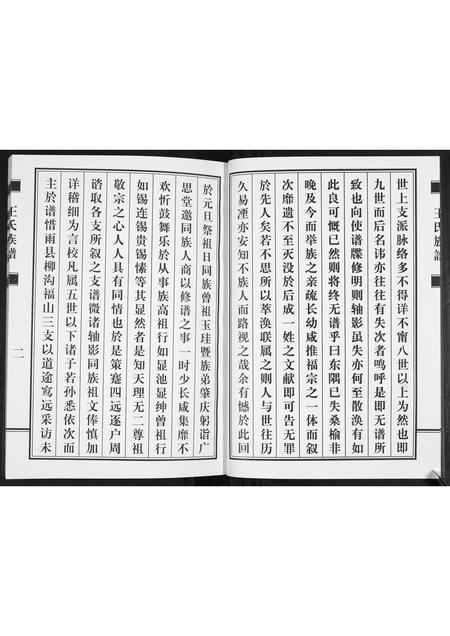 王氏族谱
世上支派脉络多不得详不甯八世以上为然也即
九世而后名讳亦往往有失次者呜呼是即无谱所
致也向使谱牒修明则轴影虽失亦何至散涣有如
此良可慨已然则将终无谱乎曰东隅已失桑榆非
晚及今而举族之亲疏长幼咸推福宗之一体而叙
次靡遗不至灭没于后成一姓之文献即可告无罪
於先人矣若不思所以萃涣联属之则人与世往历
久易湮亦安知不族人而路视之哉余有憾於此回
於元旦祭祖日同族曾祖玉珪暨族弟肇庆躬诣广
思堂邀同族人商以修谱之事一时少长咸集靡不
欢忻鼓舞乐於从事族高祖行如显池显绅曾祖行
如锡连锡贵锡愫等其显然者是知天理无二尊祖
敬宗之心人人具有同情也於是策蹇四远逐户周
谘取各支所叙之支谱微诸轴影同族祖文俸慎加
详稽细为言校凡属五世以下诸子若孙悉依次而
主於谱惜雨县柳沟福山三支以道途窎远采访未
王氏族谱
二